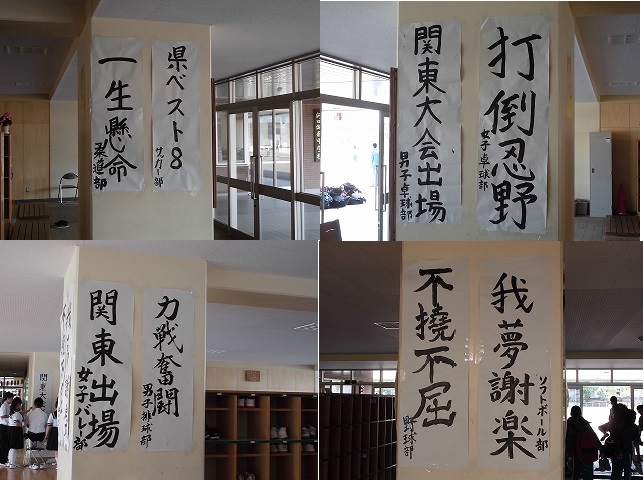 県ベスト8
サッカー部
一生懸命
柔道部
打倒忍野
女子卓球部
関東大会出場
男子卓球部
力戦奮闘
男子排球部
関東出場
女子バレー部
関東大
我夢謝楽
ソフトボール部
不撓不屈
野球部